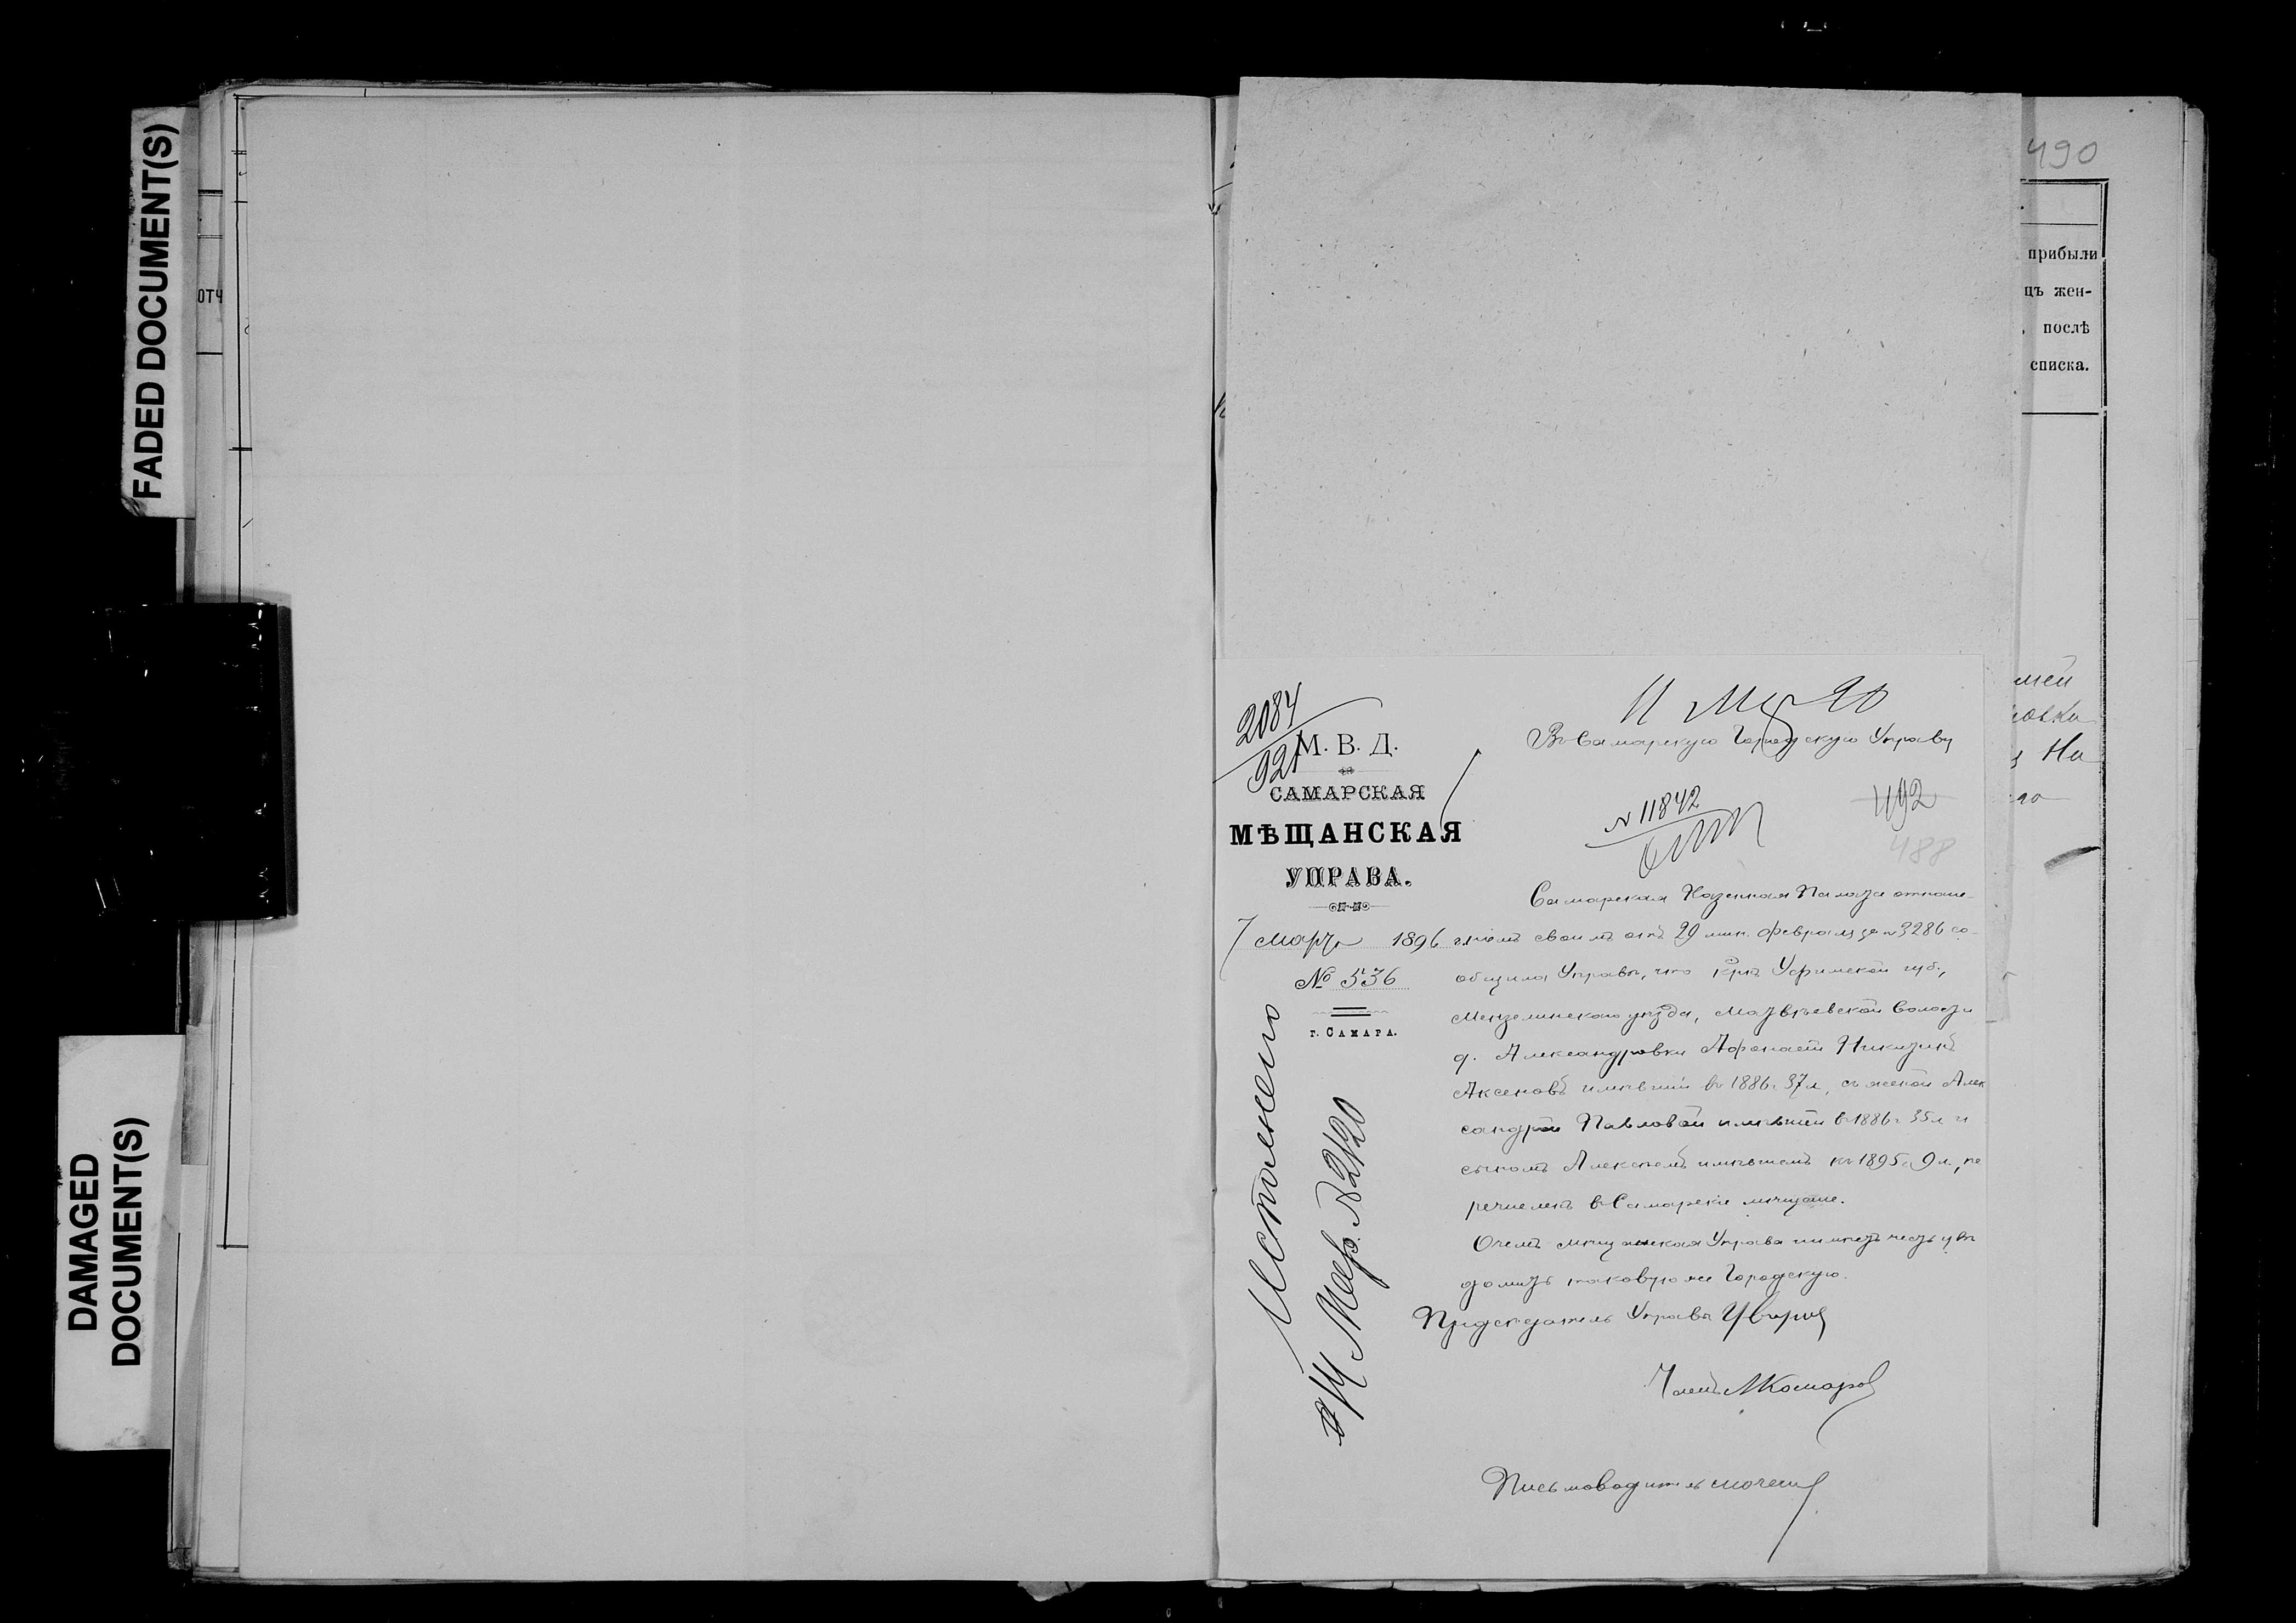 FADED DOCUMENT(S)
DAMAGED
DOCUMENT(S)
ОТЧ
490
прибыли
цъ жен-
послѣ
списка.
2084
921
М. В. Д.
САМАРСКАЯ
МѢЩАНСКАЯ
УПРАВА.
7 Марта 1896
№ 536
г. САМАРА.
Исполнено
Мар. № 2120
11 Мр
Въ Самарскую Городскую Управу
№ 11842
492
488
Самарская Казенная Палата отноше-
ніемъ своимъ отъ 29 мин. февраля за № 3286 со-
общила Управѣ, что кр-нъ Уфимской губ.,
Мензелинскаго уѣзда, Матвѣевской волости
д. Александровки Афонасій Никитинъ
Аксеновъ имѣвшій въ 1886 г. 37 л., съ женой Алек
сандрой Павловой имѣвшей въ 1886 г. 35 л. и
сыномъ Алексѣемъ имѣвшемъ къ 1895 г. 9 л., пе
речисленъ въ Самарскіе мѣщане.
О чемъ Мѣщанская Управа имѣетъ честь увѣ
домить таковую же Городскую.
Предсѣдатель Управы
Членъ МКомаров
Письмоводитель